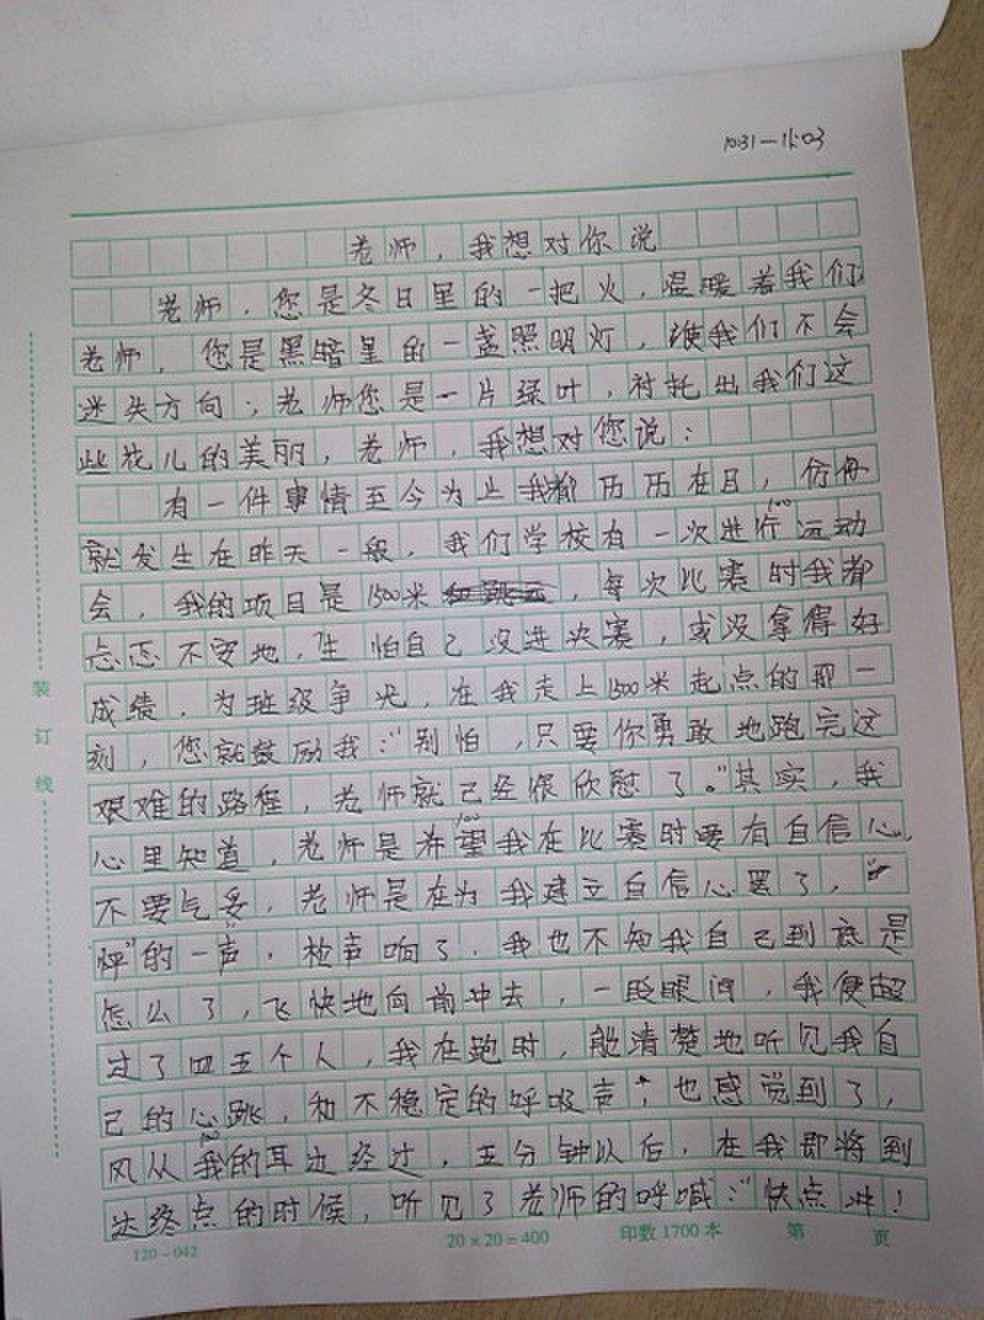 10:31—11:03
老师，我想对你说
老师，您是冬日里的一把火，温暖着我们；
老师，您是黑暗里的一盏照明灯，使我们不会
迷失方向；老师您是一片绿叶，衬托出我们这
些花儿的美丽，老师，我想对您说：
有一件事情至今为止我都历历在目，仿佛
就发生在昨天一般，我们学校有一次进行运动
100
会，我的项目是1500米，每次比赛时我都
忐忑不安地，生怕自己没进决赛，或没拿得好
成绩，为班级争光，在我走上1500米起点的那一
刻，您就鼓励我：“别怕，只要你勇敢地跑完这
艰难的路程，老师就已经很欣慰了。”其实，我
心里知道，老师是希望我在比赛时要有自信心，
100
不要气妥，老师是在为我建立自信心罢了，“
怦”的一声，枪声响了，我也不知我自己到底是
怎么了，飞快地向前冲去，一眨眼间，我便超
过了四五个人，我在跑时，能清楚地听见我自
己的心跳，和不稳定的呼吸声，也感觉到了，
风从我的耳边经过，五分钟以后，在我即将到
达终点的时候，听见了老师的呼喊：“快点冲！
装
订
线
120－042
20×20＝400
印数1700本
第 页